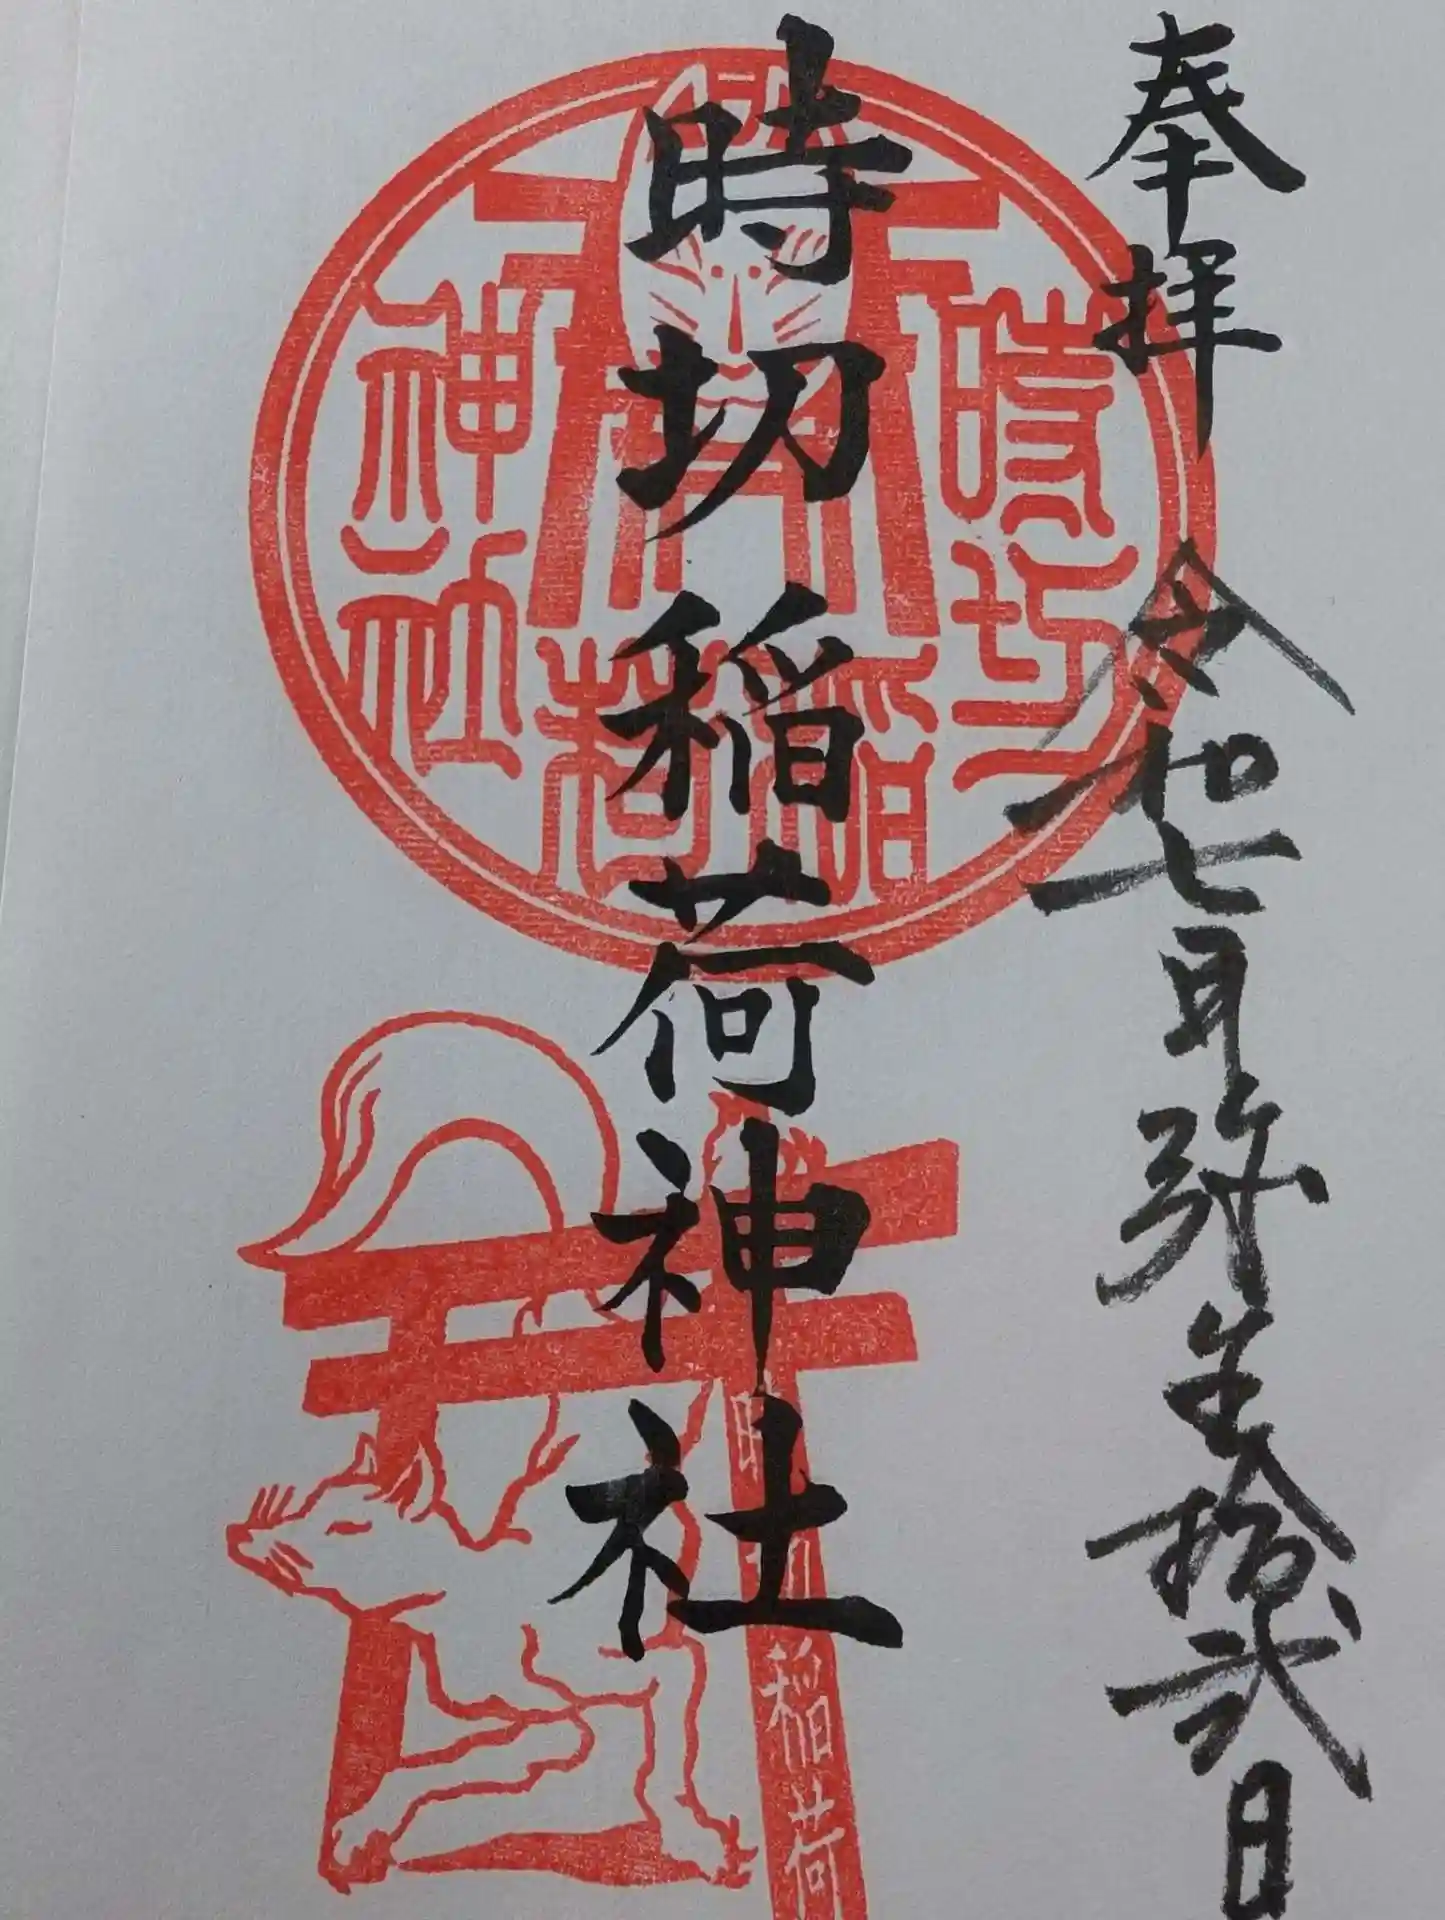 奉拝 令和七年弥生拾弐日
時切稲荷神社
時切
稲荷
神社
時切稲荷